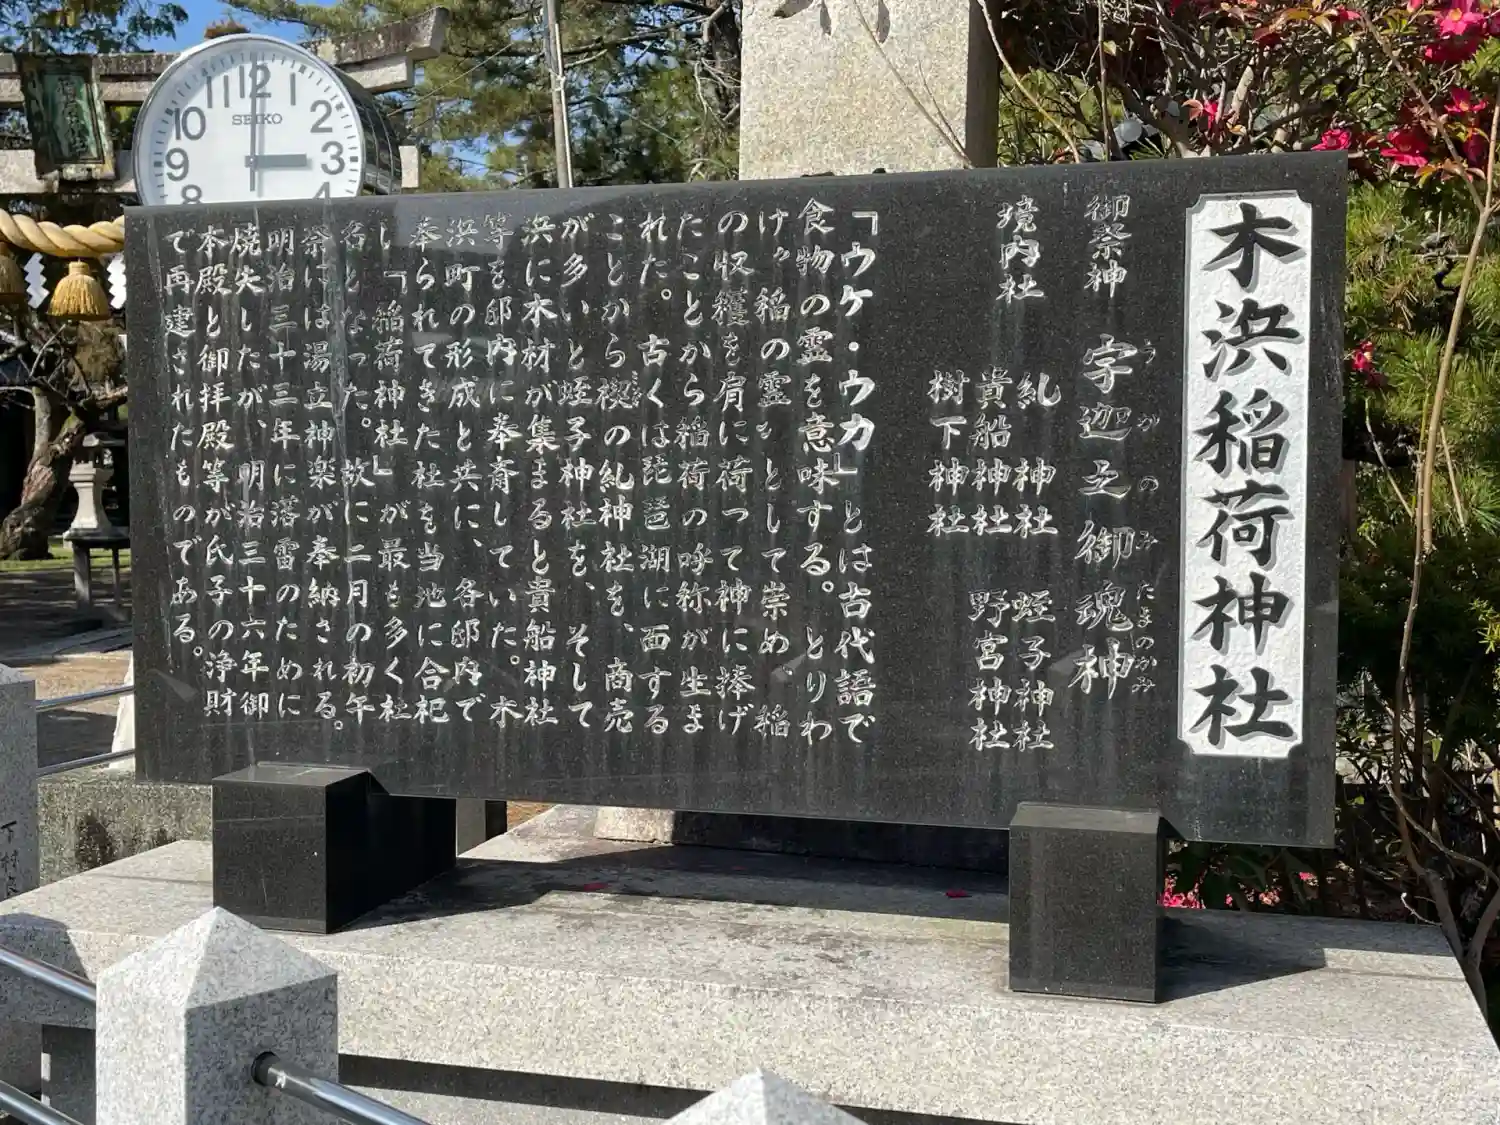 木浜稲荷神社
御祭神 宇迦之御魂神
うがのみたまのかみ
境内社 糺神社 蛭子神社
貴船神社 野宮神社
樹下神社
「ウケ・ウカ」とは古代語で
食物の霊を意味する。とりわ
け〝稲の霊〟として崇め、稲
の収穫を肩に荷って神に捧げ
たことから稲荷の呼称が生ま
れた。古くは琵琶湖に面する
ことから禊の糺神社を、商売
が多いと蛭子神社を、そして
浜に木材が集まると貴船神社
等を邸内に奉斎していた。木
浜町の形成と共に、各邸内で
奉られてきた社を当地に合祀
し「稲荷神社」が最も多く社
名となった。故に二月の初午
祭には湯立神楽が奉納される。
明治三十三年に落雷のために
焼失したが、明治三十六年御
本殿と御拝殿等が氏子の浄財
で再建されたものである。
12
1
2
3
4
8
9
10
11
SEIKO